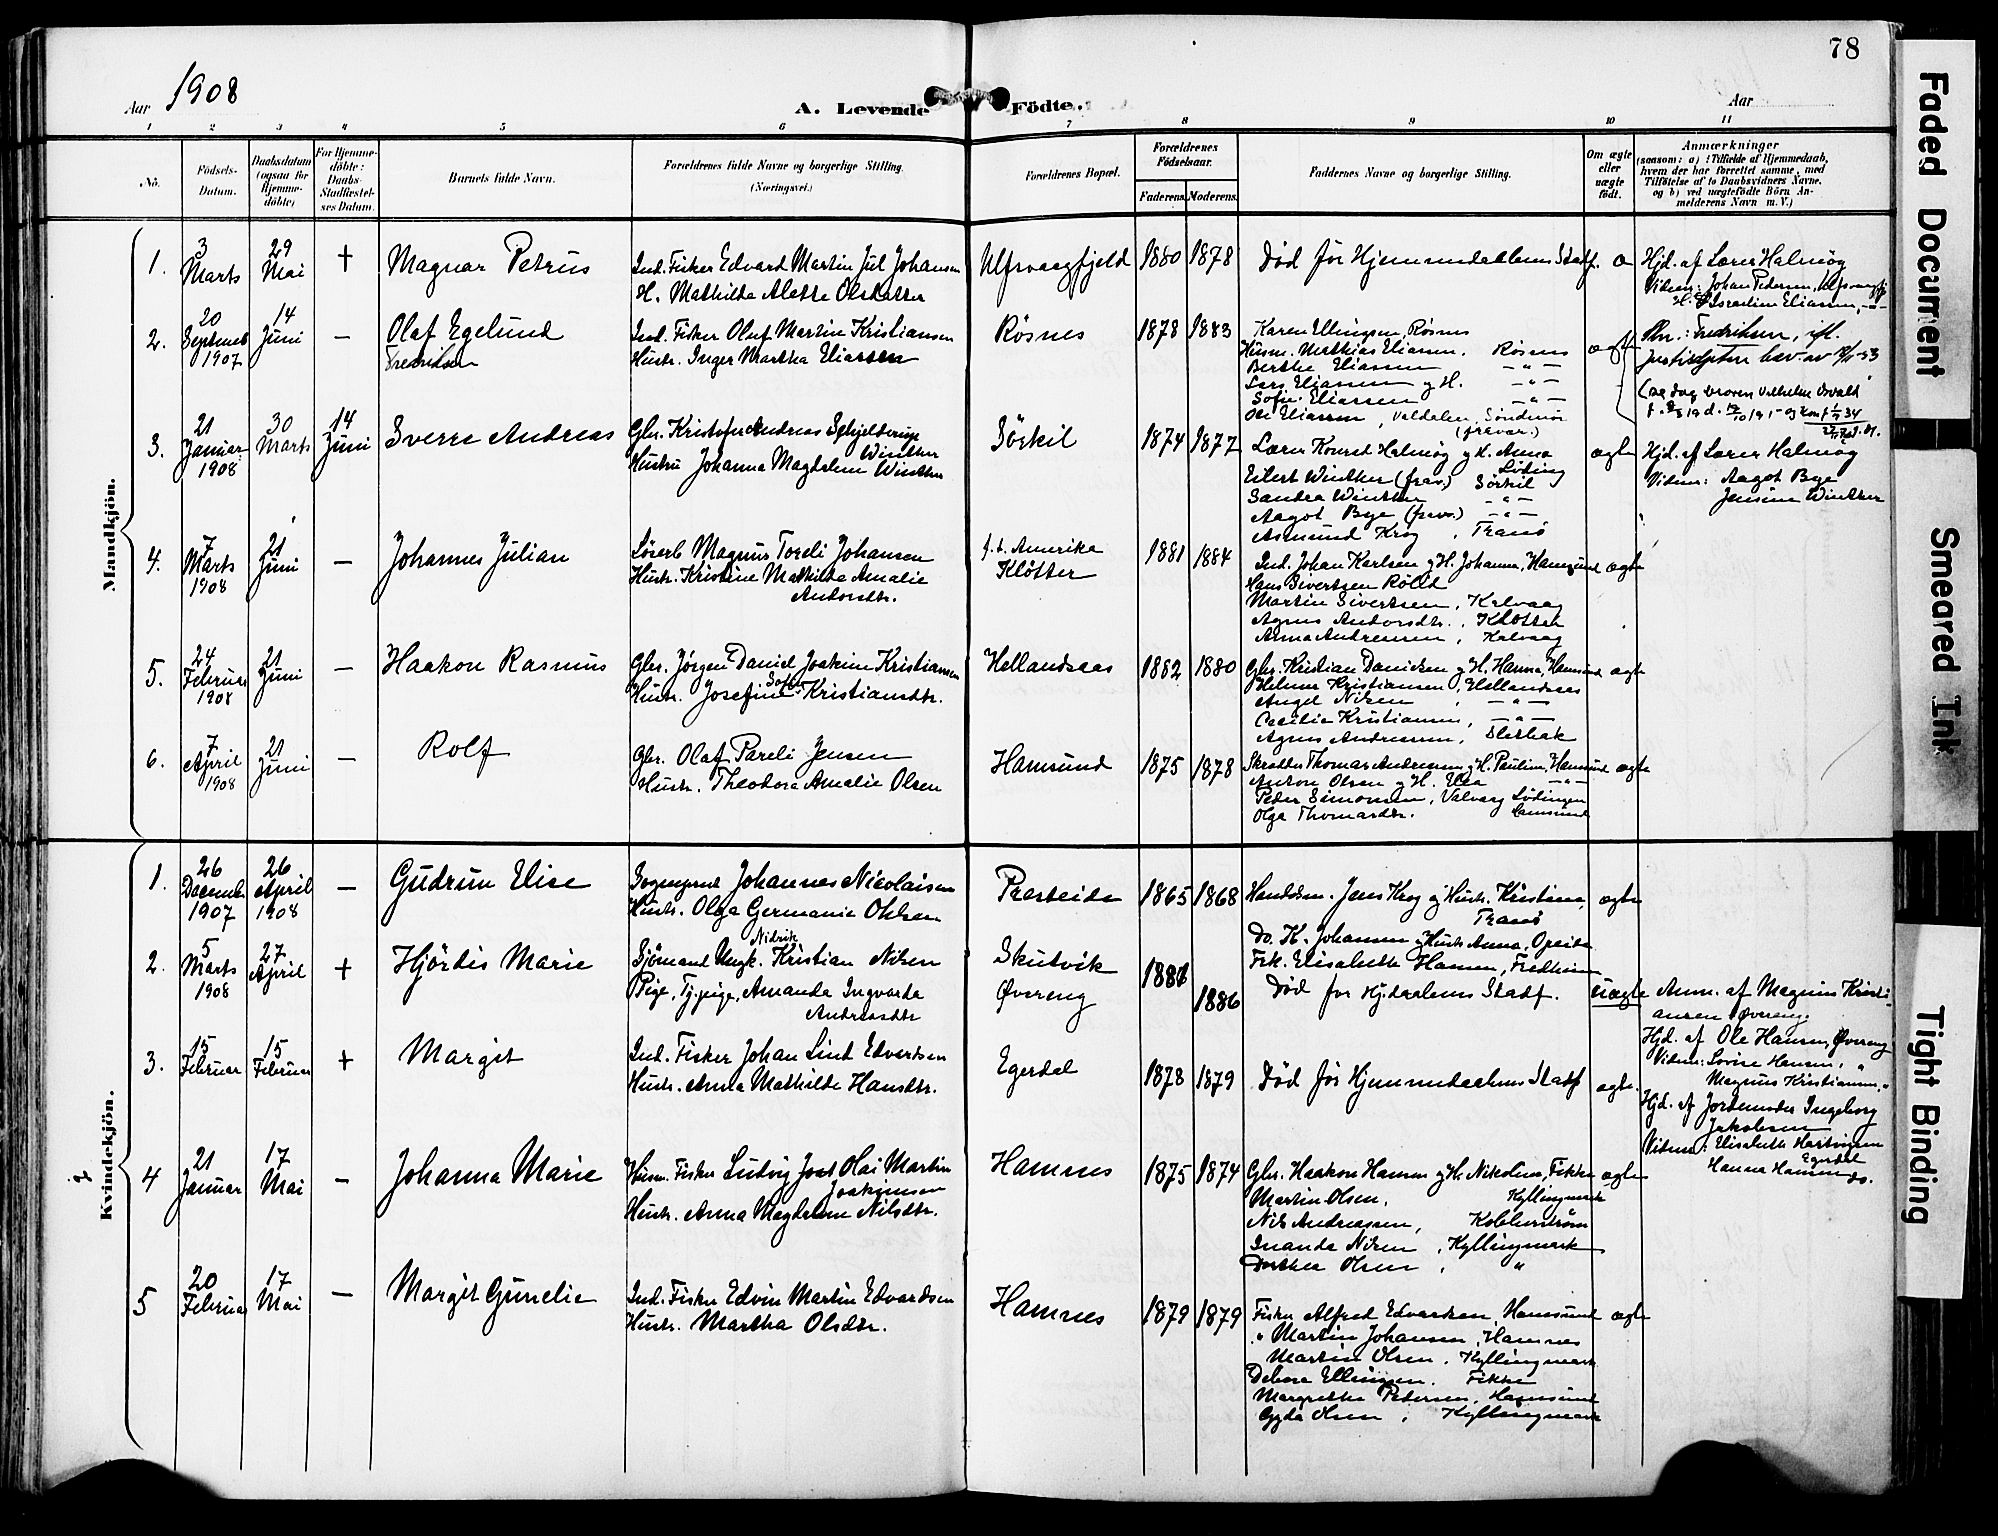 78
Aar 1908
A. Levende Födte.
Aar
1 2 3 4 5 6 7 8 9 10 11
No.
Födsels-Datum.
Daabsdatum (ogsaa for Hjemme-döbte)
For Hjemme-döbte: Daabs-Stadfæstel-ses Datum.
Barnets fulde Navn.
Forældrenes fulde Navne og borgerlige Stilling. (Næringsvei.)
Forældrenes Bopæl.
Forældrenes Födselsaar.
Faderens. Moderens.
Faddernes Navne og borgerlige Stilling.
Om ægte eller uægte födt.
Anmærkninger
(saasom: a) i Tilfælde af Hjemmedaab,
hvem der har forrettet samme, med
Tilföielse af to Daabsvidners Navne,
og b) ved uægtefödte Börn An-
melderens Navn m. V.)
Mandkjön.
1. 3 Marts 29 Mai + Magnar Petrus
Ind. Fisker Edvard Martin Jul Johansen
H. Mathilde Alette Olsdatter
Ulfsvaagfjeld 1880 1878 Död för Hjemmedaabens Stadf. æ
Hjd. af Lærer Halmøg
Vidner: Johan Pedersen, Ulfsvaagfj.
H. Israeline Eliassen, -"-
2. 20 Septmber 1907 14 Juni — Olaf Egelund
Fredriksen
Ind. Fisker Oluf Martin Kristiansen
Hustr. Inger Martha Eliassen
Røsnes 1878 1883
Karen Ellingsen, Røsnes
Husm. Mathias Eliassen, Røsnes
Berthe Eliassen -"-
Lars Eliassen og H. -"-
Sofie Eliassen -"-
Ole Eliassen, Valdalen, Søndmør
(fravær.)
ægte
Sln.: Fredriksen, ifl.
Justisdptm bev. av
3. 21 Januar 1908 30 Marts 14 Juni Sverre Andreas
Gbr. Kristofer Andreas Schjelderup
Winther
Hustru Johanna Magdalene Winther
Sörkil 1874 1877
Lærer Konrad Halmøg og H. Anna
Löding
Eilert Winther (frav.) Sörkil
Sandra Winther -"-
Aagot Bye (frav.) -"-
Asmund Krog, Tranö
ægte
Hjd. af Lærer Halmøg
Vidner: Aagot Bye
Jensine Winther
4. 7 Marts 1908 21 Juni — Johannes Julian
Löserb Magnus Toreli Johansen
Hustr. Kristine Mathilde Amalie
Andorsdtr.
f. t. Amerika
Klötter 1881 1884
Ind. Johan Karlsen og H. Johanna, Hamsund ægte
Hans Sivertsen Röttd
Martin Sivertsen, Kalvaag
Agnes Andorsdtr., Klötter
Anna Andreassen, Kalvaag
5. 24 Februar 1908 21 Juni — Haakon Rasmus
Gbr. Jörgen Daniel Joakim Kristiansen
Hustr. Josefine Sofie Kristiansdtr.
Hellandsaas 1882 1880
Gbr. Kristian Danielsen og H. Hanna, Hamsund ægte
Helmer Kristiansen, Hellandsaas
Angel Nilsen, -"-
Cecilie Kristiansen, -"-
Agnes Andreassen,
6. 7 April 1908 21 Juni — Rolf
Gbr. Olaf Pareli Jensen
Hustr. Theodora Amalie Olsen
Hamsund 1875 1878
Skrædder Thomas Andreassen og H. Pauline, Hamsund ægte
Anton Olsen og H. Elea -"-
Peder Simonsen, Valvaag Lödingen
Olga Thomasdtr. Hamsund
Kvindekjön.
1. 26 Decembr 1907 26 April 1908 — Gudrun Elise
Sogneprest Johannes Nicolaisen
Hustr. Olga Germanie Olsen
Presteide 1865 1868
Handelsm. Jens Krog og Hustr. Kristine,
Tranö
Do. K. Johansen og Hustr. Anna, Opeide
Frk. Elisabeth Hansen, Fredheim
ægte
2. 5 Marts 1908 27 April + Hjördis Marie
Sjömand Ungk. Kristian Nidrik Nilsen
Pige, Tj.pige, Amanda Ingvarda
Andreasdtr
Skutvik
Øvereng 1881 1886
Död for Hj.daabens Stadf. uægte
Anm. af Magnus Kristi-
ansen Øvereng.
Hjd. af Ole Hansen, Øvereng
Vidner: Lovise Hansen, "
Magnus Kristiansen, "
3. 15 Februar 15 Februar + Margit
Ind. Fisker Johan Lind Edvardsen
Hustr. Anna Mathilde Hansdtr.
Egerdal 1878 1879 Död för Hjemmedaabens Stadf ægte.
Hjd. af Jordemoder Ingeborg
Jakobsen
Vidner: Elisabeth Hartvigsen
Egerdal
Hanna Hansen do.
4 21 Januar 17 Mai — Johanna Marie
Husm. Fisker Ludvig Jost Olai Martin
Joakimsen
Hustr. Anna Magdalene Nilsdtr.
Hamnes 1875 1874
Gbr. Haakon Hansen og H. Nikoline, Fikke ægte
Martin Olsen, Kyllingmark
Nils Andreassen, Kobbenström
Inanda Nilsen, Kyllingmark
Dorthea Olsen, "
5 20 Februar 17 Mai — Margit Gunelie
Ind. Fisker Edvin Martin Edvardsen
Hustr. Martha Olsdtr.
Hamnes 1879 1879
Fisker Alfred Edvardsen, Hamsund ægte
" Martin Johansen, Hamnes
Martin Olsen, Kyllingmark
Debora Ellingsen, Fikke
Margrethe Pedersen, Hamsund
Gyda Olsen, Kyllingmark
Faded Document
Smeared Ink
Tight Binding